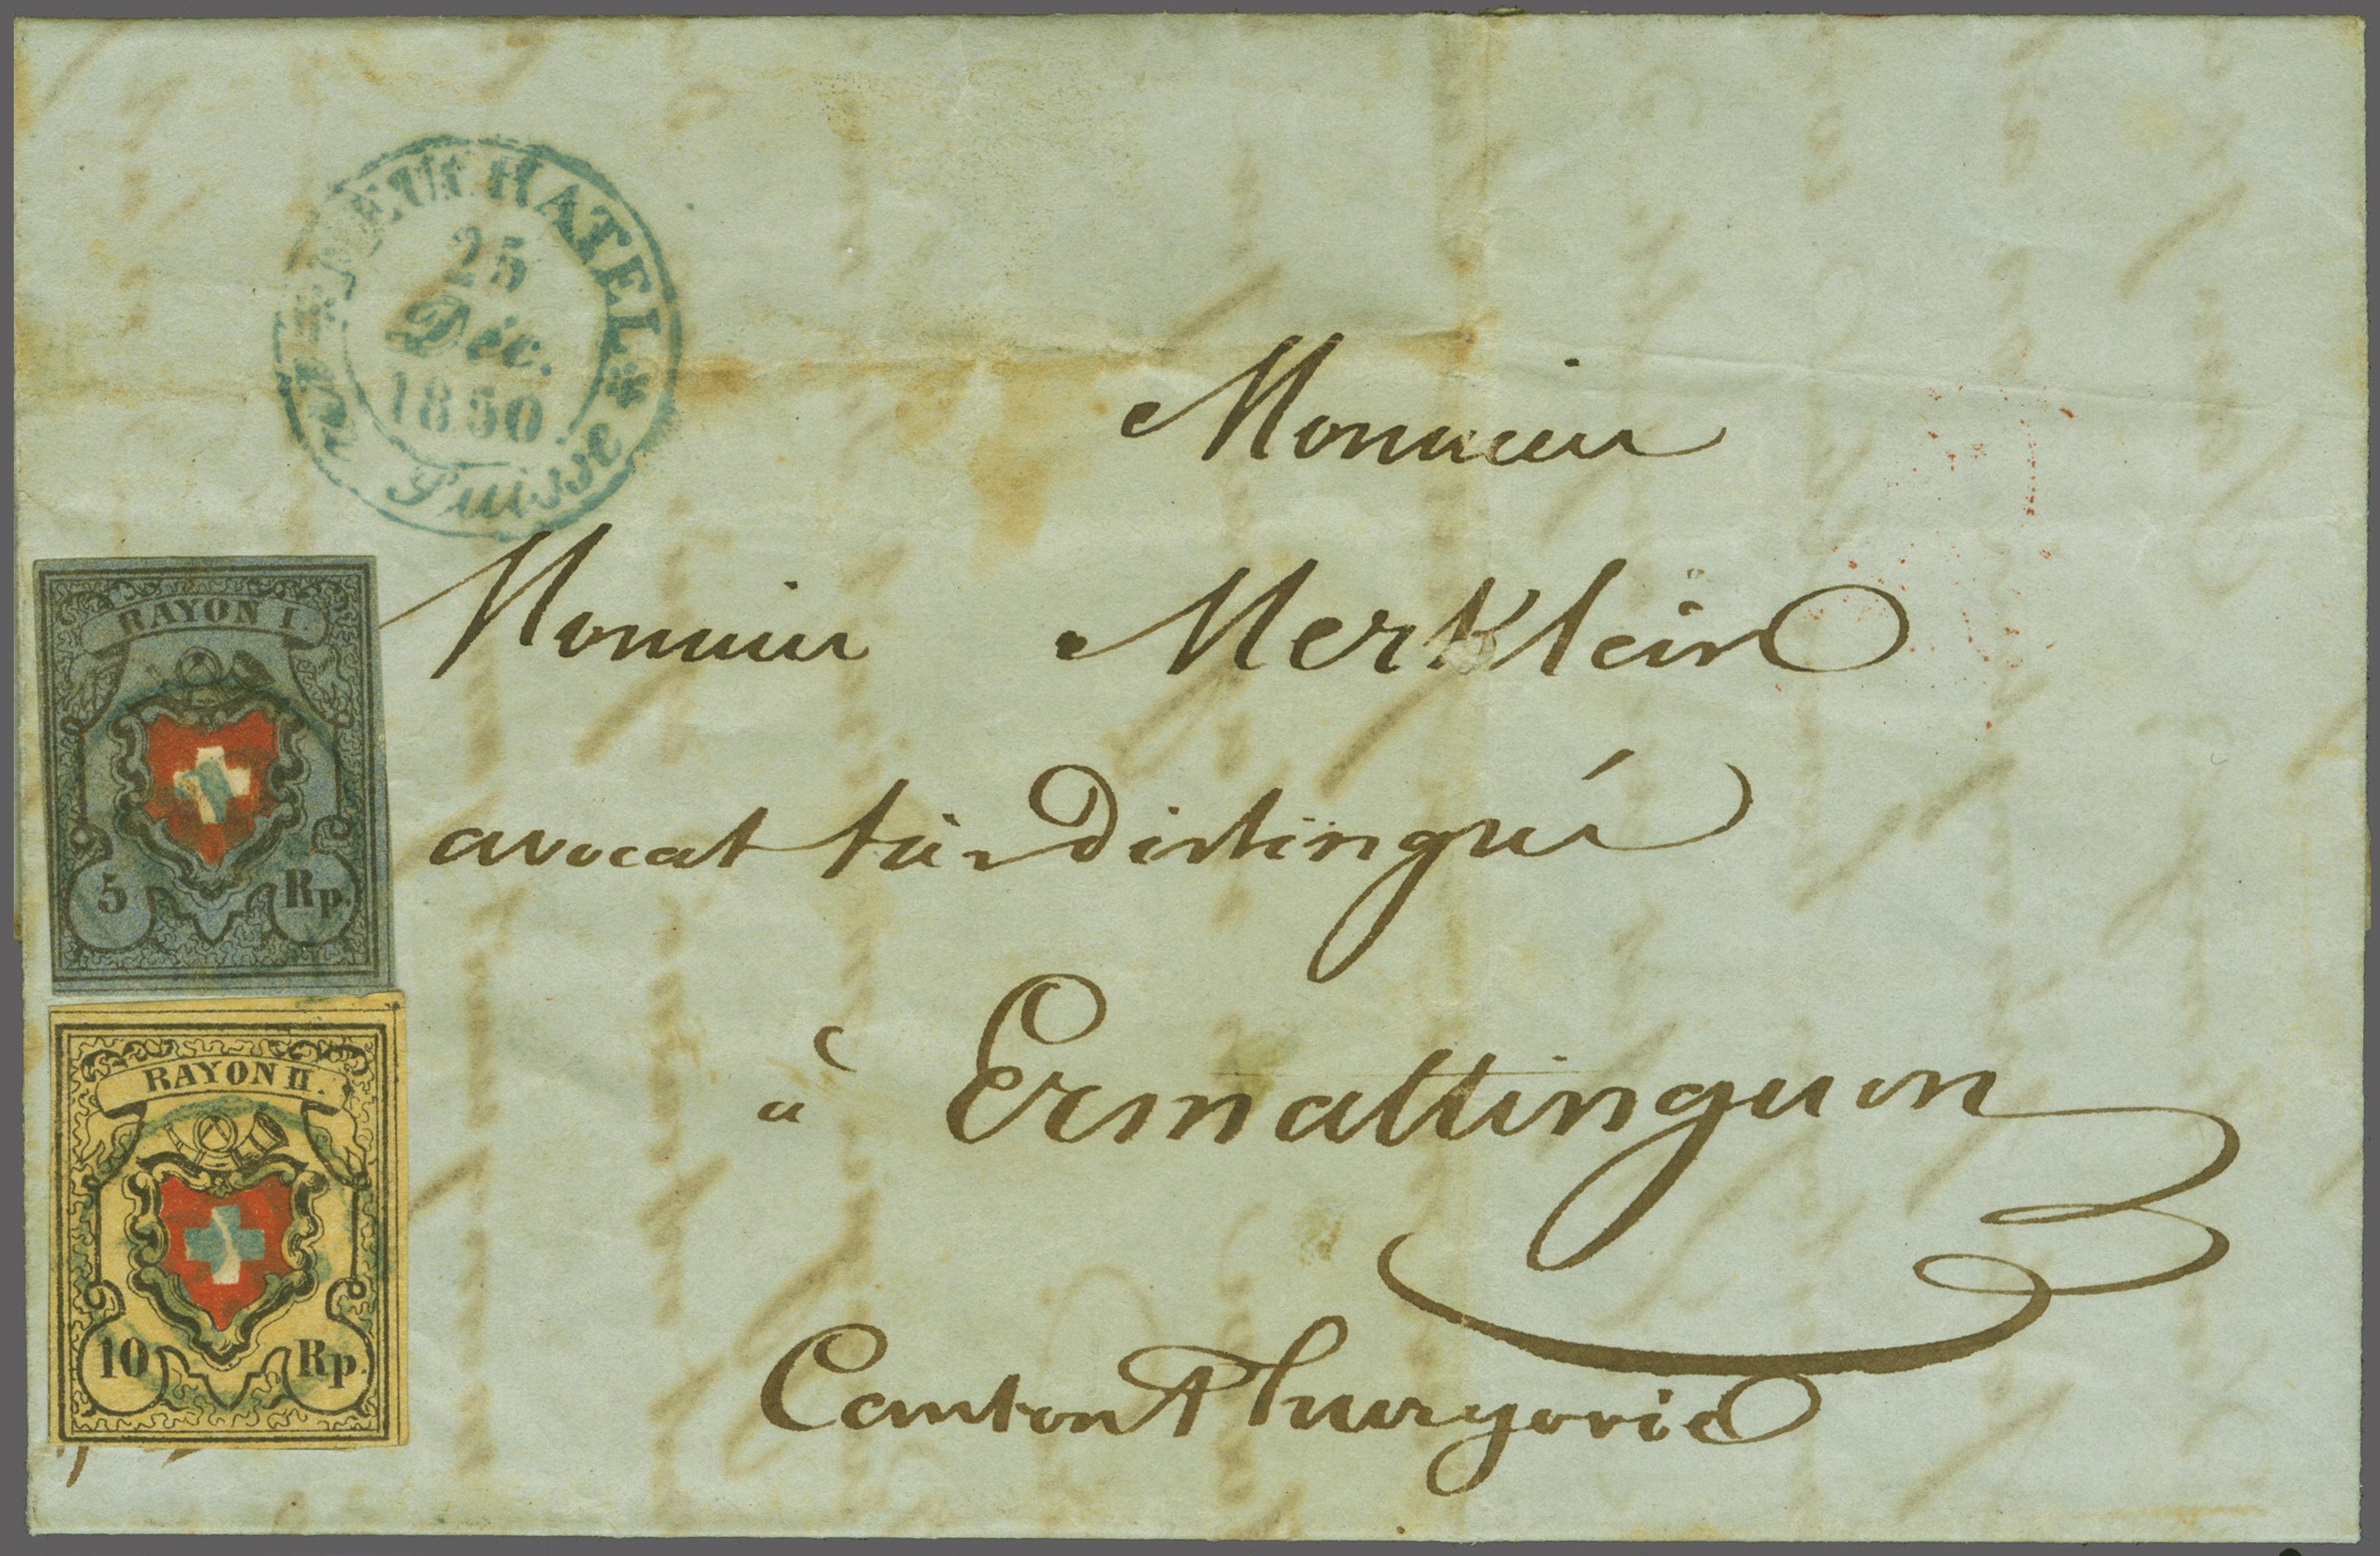 NEUCHATEL
25
Déc.
1850
Suisse
Monsieur
Monsieur Merklein
avocat très Distingué
à Ermattinguen
Canton Thurgovie
RAYON I.
5 Rp.
RAYON II.
10 Rp.